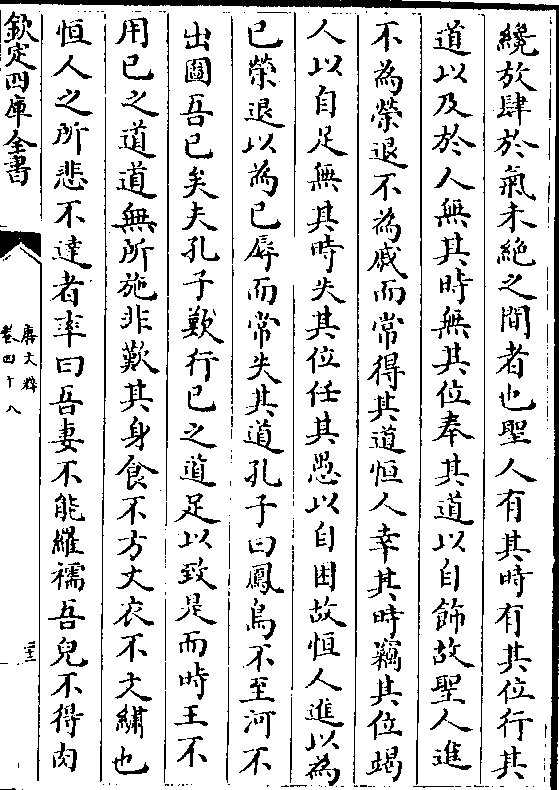 纔放肆於氣未絶之間者也聖人有其時有其位行其
道以及於人無其時無其位奉其道以自飾故聖人進
不為榮退不為戚而常得其道恒人幸其時竊其位竭
人以自足無其時失其位任其愚以自困故恒人進以為
已榮退以為已辱而常失其道孔子曰鳳鳥不至河不
出圖吾已矣夫孔子歎行已之道足以致是而時王不
用已之道道無所施非歎其身食不方丈衣不文繡也
恒人之所悲不達者率曰吾妻不能羅襦吾兒不得肉
欽定四庫全書
唐文粹
卷四十八